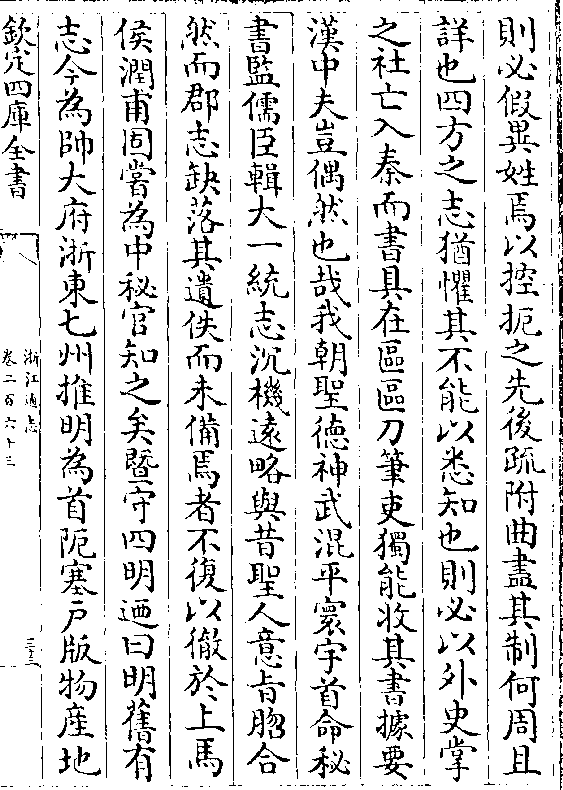 則必假異姓焉以控扼之先後疏附曲盡其制何周且
詳也四方之志猶懼其不能以悉知也則必以外史掌
之社亡入秦而書具在區區刀筆吏獨能收其書據要
漢中夫豈偶然也哉我朝聖德神武混平寰宇首命秘
書監儒臣輯大一統志沉機遠略與昔聖人意旨脗合
然而郡志缺落其遺佚而未備焉者不復以徹於上馬
侯潤甫固嘗為中秘官知之矣暨守四明迺曰明舊有
志今為帥大府浙東七州推明為首阨塞户版物產地
欽定四庫全書
浙江通志
卷二百六十三
三三